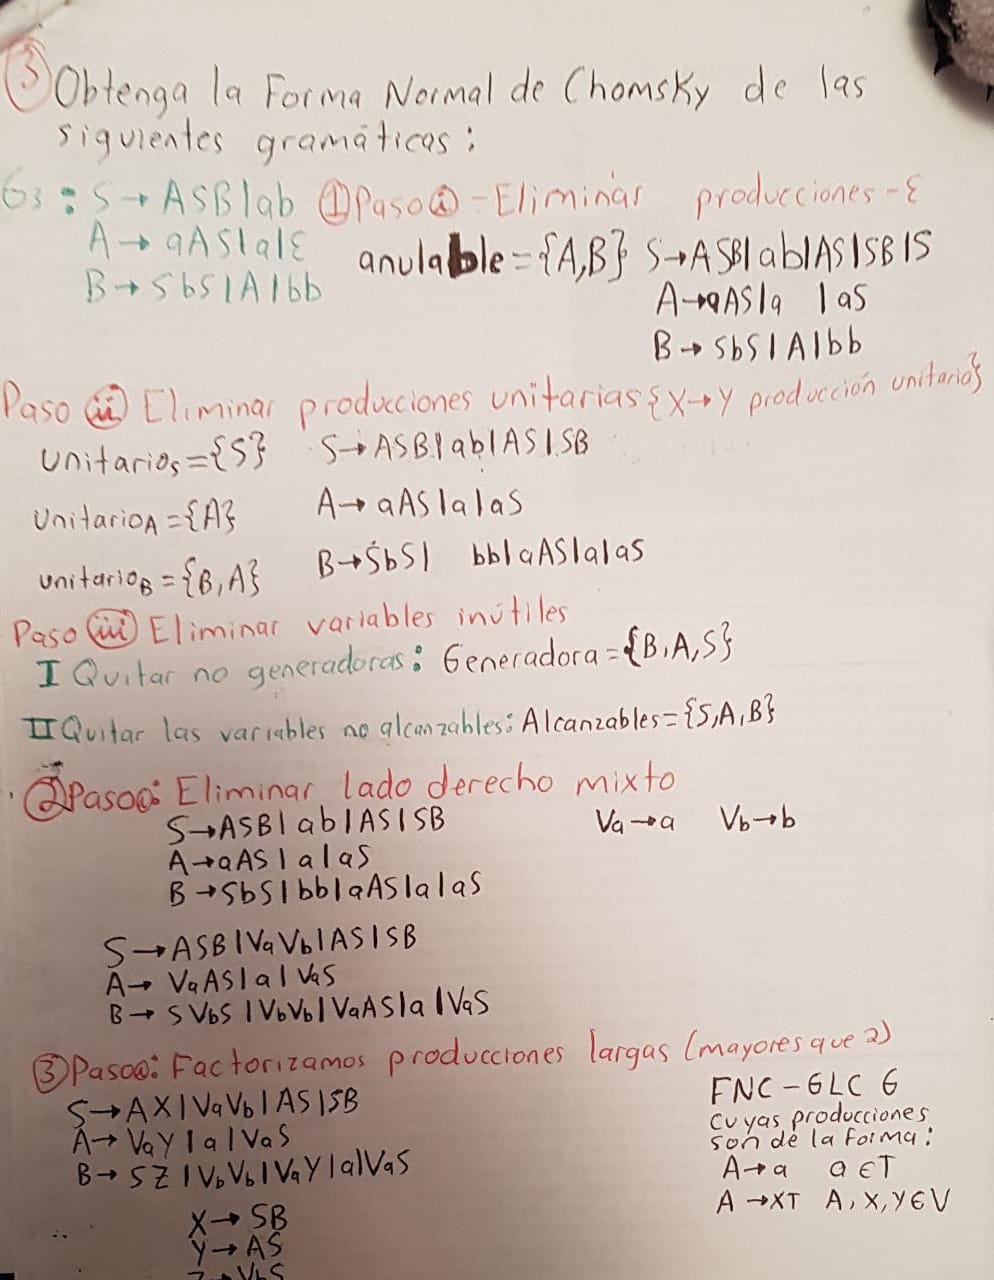 ③ Obtenga la Forma Normal de Chomsky de las
siguientes gramáticas:
G3: S→ASB|ab ① Paso ⓘ - Eliminar producciones - ε
A→aAS|a|ε anulable={A,B} S→ASB|ab|AS|SB|S
B→SbS|A|bb A→aAS|a |aS
B→SbS|A|bb
Paso ⓘⓘ Eliminar producciones unitarias {X→Y producción unitaria}
Unitarios={S} S→ASB|ab|AS|SB
UnitarioA={A} A→aAS|a|aS
unitarioB={B,A} B→SbS| bb|aAS|a|aS
Paso ⓘⓘⓘ Eliminar variables inútiles
I Quitar no generadoras: Generadora={B,A,S}
II Quitar las variables no alcanzables: Alcanzables={S,A,B}
② Paso: Eliminar lado derecho mixto
S→ASB|ab|AS|SB Va→a Vb→b
A→aAS|a|aS
B→SbS|bb|aAS|a|aS
S→ASB|VaVb|AS|SB
A→VaAS|a|VaS
B→SVbS|VbVb|VaAS|a|VaS
③ Paso: Factorizamos producciones largas (mayores que 2)
S→AX|VaVb|AS|SB
A→VaY|a|VaS
B→SZ|VbVb|VaY|a|VaS
∴ X→SB
Y→AS
Z→VbS
FNC - GLC G
cuyas producciones
son de la forma:
A→a a∈T
A→XT A,X,Y∈V